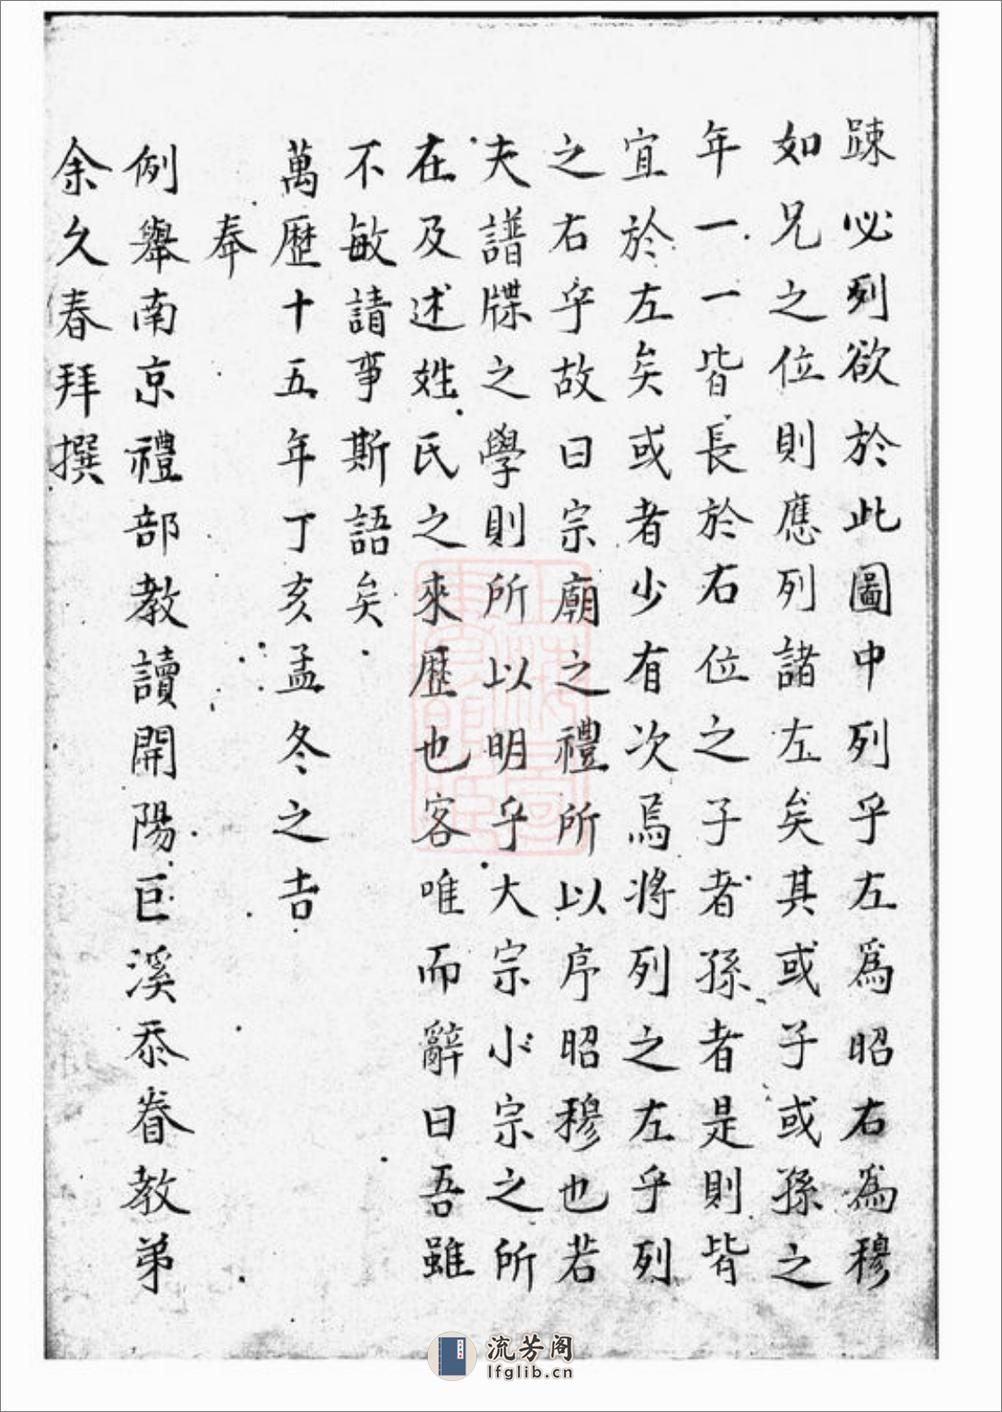 踈必列欲於此圖中列乎左爲昭右爲穆
如兄之位則應列諸左矣其或子或孫之
年一一皆長於右位之子者孫者是則皆
宜於左矣或者少有次焉將列之左乎列
之右乎故曰宗廟之禮所以序昭穆也若
夫譜牒之學則所以明乎大宗小宗之所
在及述姓氏之來歷也客唯而辭曰吾雖
不敏請事斯語矣
萬歷十五年丁亥孟冬之吉
奉
例舉南京禮部教讀開陽巨溪忝眷教弟
余久春拜撰
流芳阁
lfglib.cn